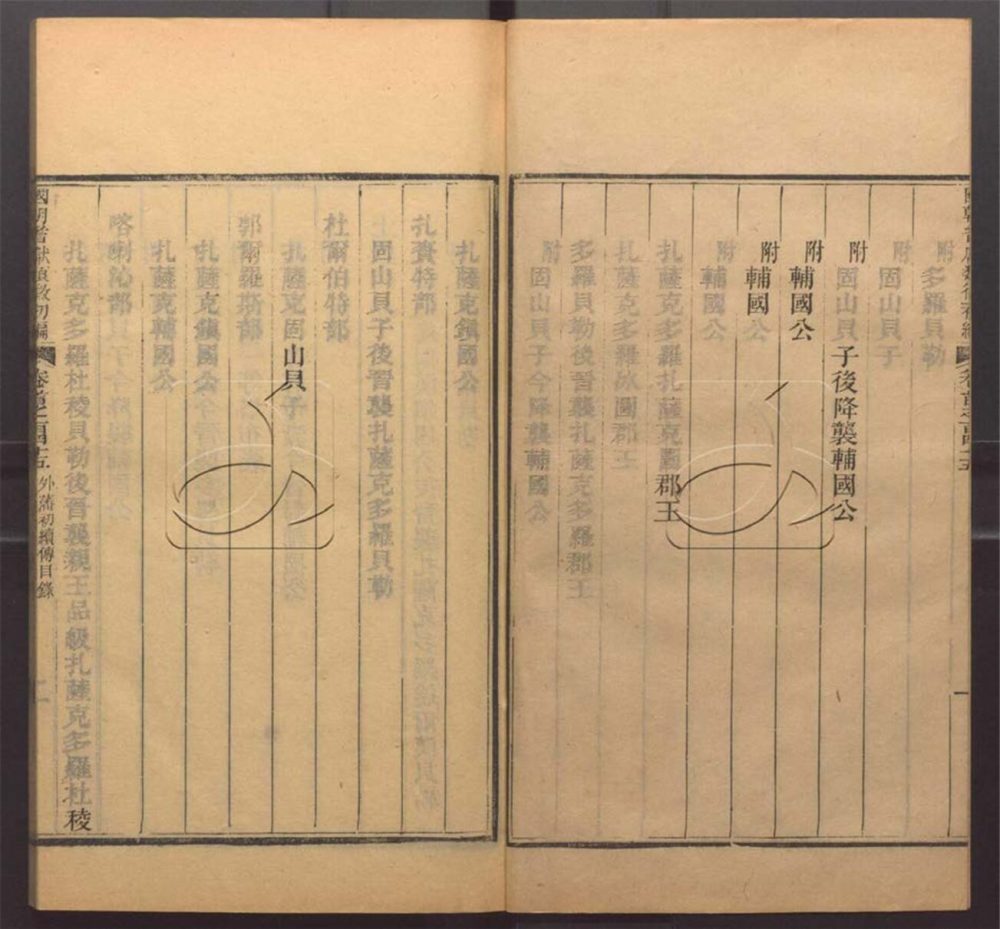 附多羅貝勒
附固山貝子
附固山貝子後降襲輔國公
附輔國公
附輔國公
附輔國公
扎薩克多羅扎薩克圖郡王
扎薩克多羅冰圖郡王
多羅貝勒後晉襲扎薩克多羅郡王
附固山貝子今降襲輔國公
扎薩克鎮國公
扎賚特部
固山貝子後晉襲扎薩克多羅貝勒
杜爾伯特部
扎薩克固山貝子
郭爾羅斯部
扎薩克鎮國公
扎薩克輔國公
喀喇沁部
扎薩克多羅杜稜貝勒後晉襲親王品級扎薩克多羅杜稜
國朝耆獻類徵初編 外藩初續傳目錄